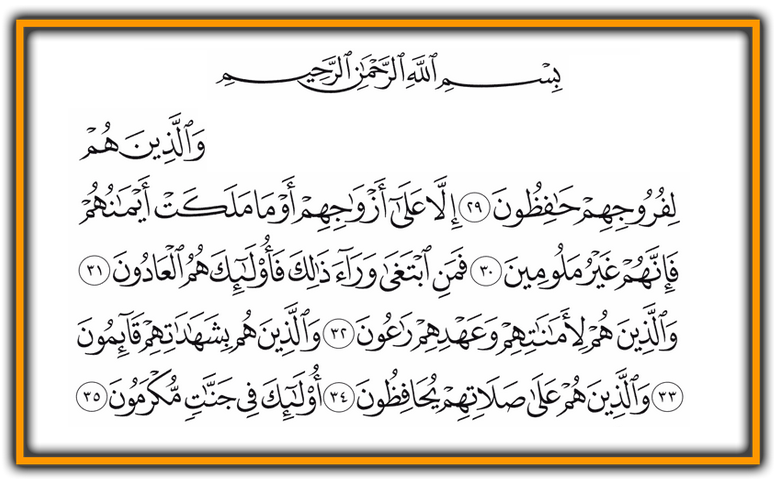 بِسْمِ ٱللَّهِ ٱلرَّحْمَٰنِ ٱلرَّحِيمِ
وَٱلَّذِينَ هُمْ
لِفُرُوجِهِمْ حَٰفِظُونَ ٢٩ إِلَّا عَلَىٰٓ أَزْوَٰجِهِمْ أَوْ مَا مَلَكَتْ أَيْمَٰنُهُمْ
فَإِنَّهُمْ غَيْرُ مَلُومِينَ ٣٠ فَمَنِ ٱبْتَغَىٰ وَرَآءَ ذَٰلِكَ فَأُو۟لَٰٓئِكَ هُمُ ٱلْعَادُونَ ٣١
وَٱلَّذِينَ هُمْ لِأَمَٰنَٰتِهِمْ وَعَهْدِهِمْ رَٰعُونَ ٣٢ وَٱلَّذِينَ هُم بِشَهَٰدَٰتِهِمْ قَآئِمُونَ
٣٣ وَٱلَّذِينَ هُمْ عَلَىٰ صَلَاتِهِمْ يُحَافِظُونَ ٣٤ أُو۟لَٰٓئِكَ فِى جَنَّٰتٍ مُّكْرَمُونَ ٣٥